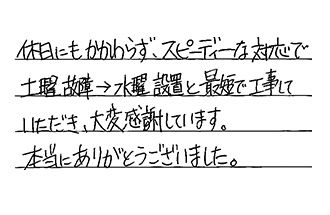 休日にもかかわらず、スピーディーな対応で
土曜故障→水曜設置と最短で工事して
いただき、大変感謝しています。
本当にありがとうございました。